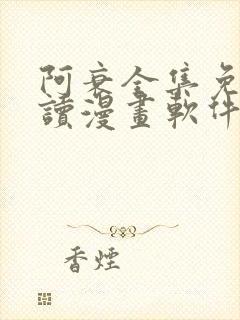 阿衰全集免
讀漫畫軟件
香煙